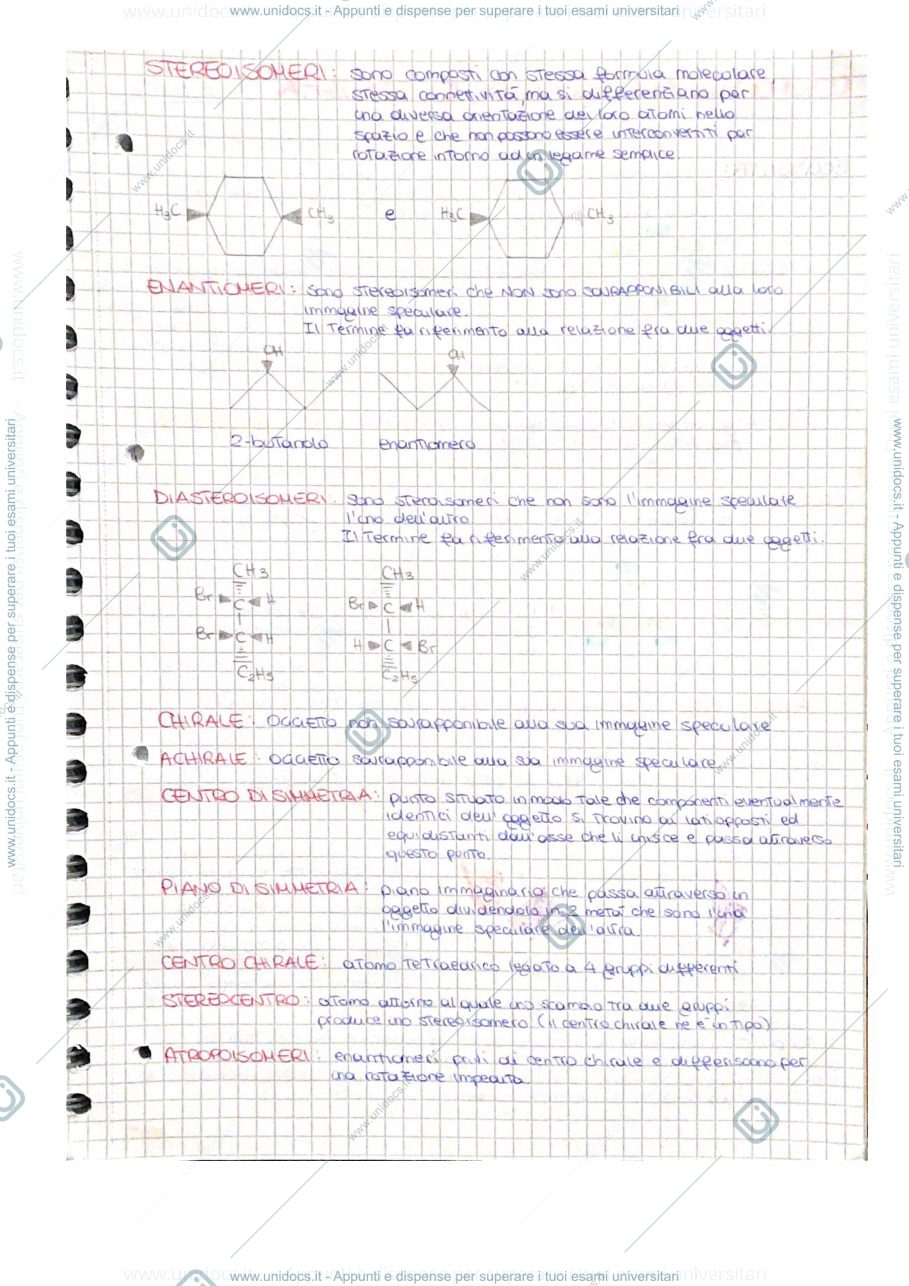 www.unidocs.it - Appunti e dispense per superare i tuoi esami universitari
STEREOISOMERI: sono composti con stessa formula molecolare,
stessa connettività, ma si differenziano per
una diversa orientazione dei loro atomi nello
spazio e che non possono essere interconvertiti per
rotazione intorno ad un legame semplice.
H3C CH3 e H3C CH3
ENANTIOMERI: sono stereoisomeri che NON sono SOVRAPPONIBILI alla loro
immagine speculare.
Il Termine fa riferimento alla relazione fra due oggetti.
OH OH
2-butanolo enantiomero
DIASTEROISOMERI: sono steroisomeri che non sono l'immagine speculare
l'uno dell'altro
Il Termine fa riferimento alla relazione fra due oggetti.
CH3 CH3
Br C H Br C H
Br C H H C Br
C2H5 C2H5
CHIRALE: OGGETTO non sovrapponibile alla sua immagine speculare
ACHIRALE: OGGETTO sovrapponibile alla sua immagine speculare.
CENTRO DI SIMMETRIA: punto situato in modo tale che componenti eventualmente
identici dell'oggetto si trovino ai lati opposti ed
equidistanti dall'asse che li unisce e passa attraverso
questo punto.
PIANO DI SIMMETRIA: piano immaginario che passa attraverso un
oggetto dividendolo in 2 metà che sono l'una
l'immagine speculare dell'altra
CENTRO CHIRALE: atomo tetraedrico legato a 4 gruppi differenti
STEREOCENTRO: atomo attorno al quale uno scambio tra due gruppi
produce uno stereoisomero (il centro chirale ne è un tipo)
ATROPOISOMERI: enantiomeri privi di centro chirale e differiscono per
una rotazione impedita.
www.unidocs.it - Appunti e dispense per superare i tuoi esami universitari
www.unidocs.it - Appunti e dispense per superare i tuoi esami universitari
www.unidocs.it - Appunti e dispense per superare i tuoi esami universitari